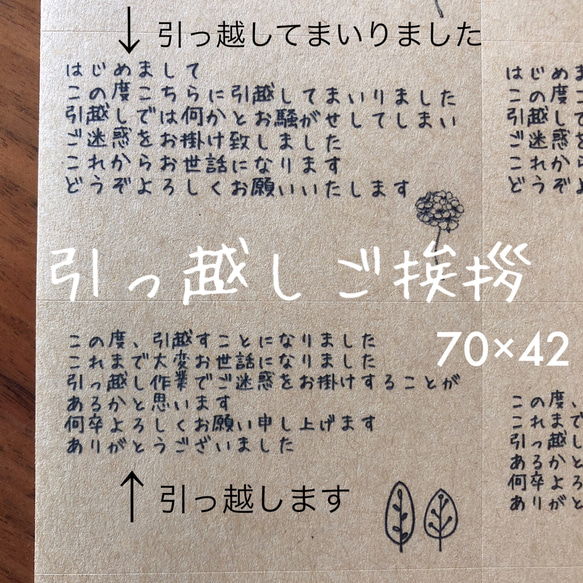 ↓ 引っ越してまいりました
はじめまして
この度こちらに引越してまいりました
引越しでは何かとお騒がせしてしまい
ご迷惑をお掛け致しました
これからお世話になります
どうぞよろしくお願いいたします
はじめま
この度こ
引越して
ご迷惑を
これから
どうぞよ
引っ越しご挨拶
70×42
この度、引越すことになりました
これまで大変お世話になりました
引っ越し作業でご迷惑をお掛けすることが
あるかと思います
何卒よろしくお願い申し上げます
ありがとうございました
この度、
これまで
引っ越し
あるかと
何卒よろ
ありがと
↑ 引っ越します